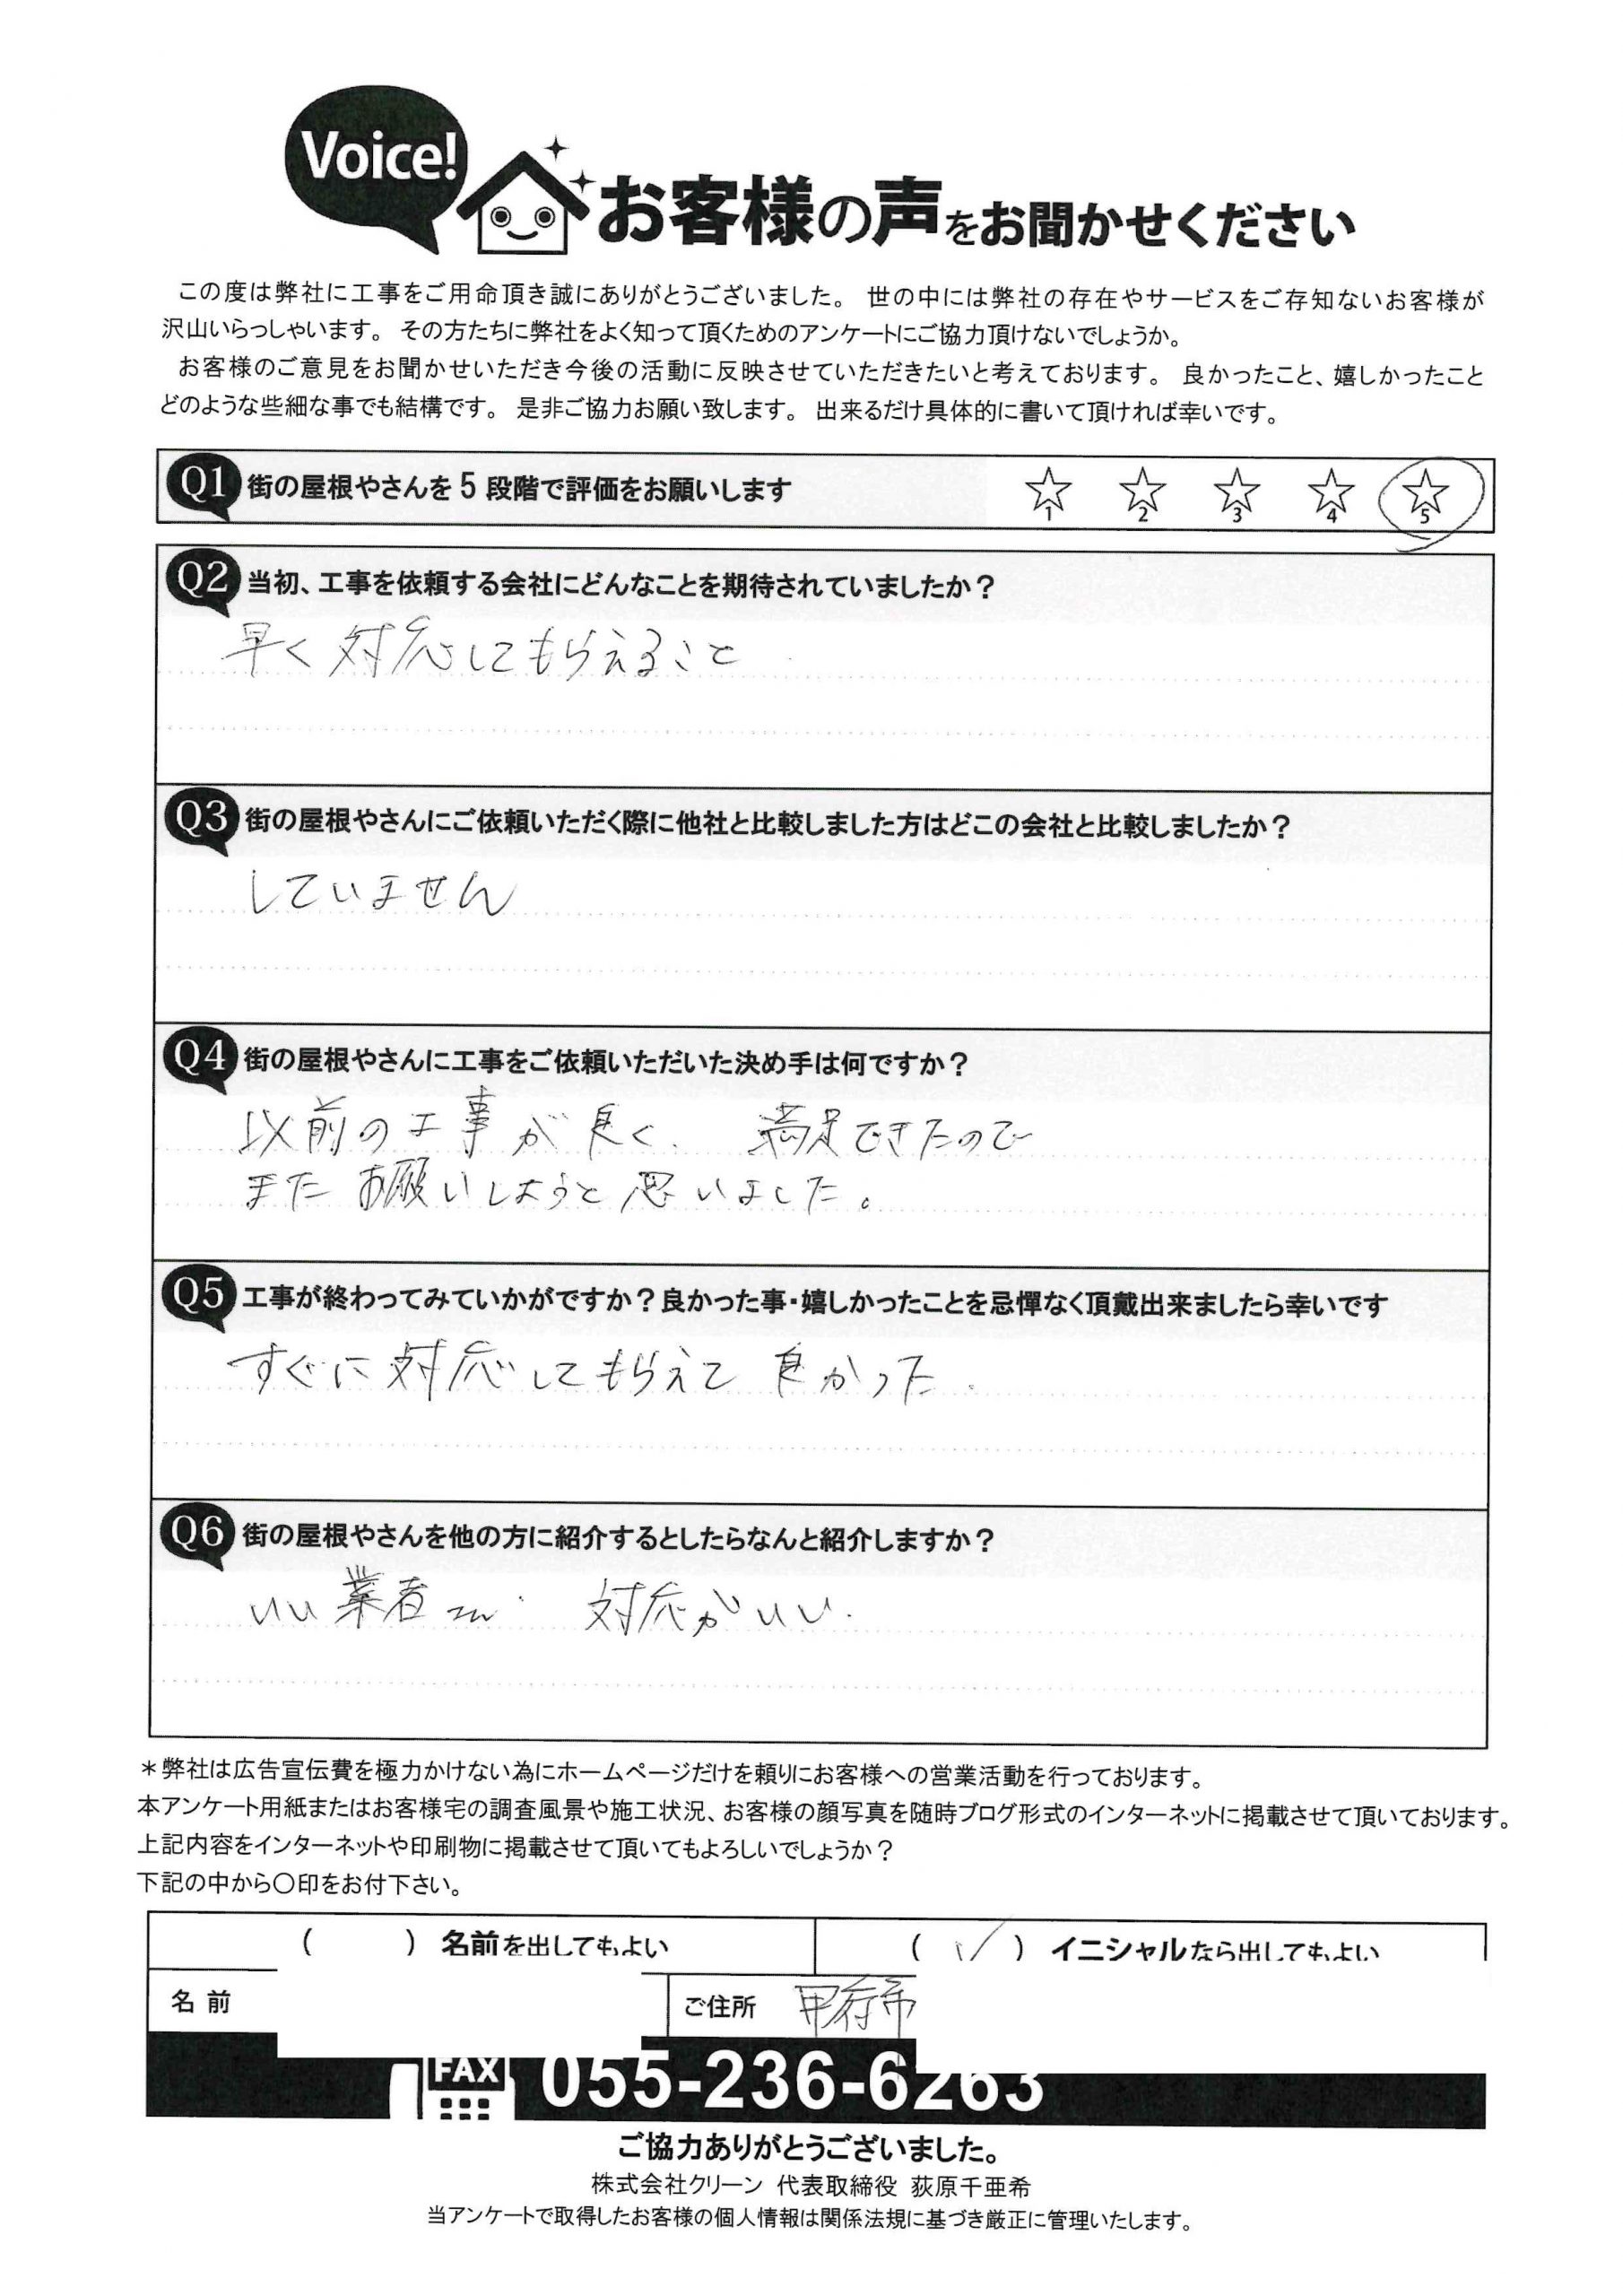 Voice!
お客様の声をお聞かせください
この度は弊社に工事をご用命頂き誠にありがとうございました。 世の中には弊社の存在やサービスをご存知ないお客様が
沢山いらっしゃいます。 その方たちに弊社をよく知って頂くためのアンケートにご協力頂けないでしょうか。
お客様のご意見をお聞かせいただき今後の活動に反映させていただきたいと考えております。 良かったこと、嬉しかったこと
どのような些細な事でも結構です。 是非ご協力お願い致します。 出来るだけ具体的に書いて頂ければ幸いです。
Q1 街の屋根やさんを 5 段階で評価をお願いします ☆1 ☆2 ☆3 ☆4 ☆5
Q2 当初、工事を依頼する会社にどんなことを期待されていましたか？
早く対応してもらえること
Q3 街の屋根やさんにご依頼いただく際に他社と比較しました方はどこの会社と比較しましたか？
していません
Q4 街の屋根やさんに工事をご依頼いただいた決め手は何ですか？
以前の工事が良く、 満足できたので
またお願いしようと思いました。
Q5 工事が終わってみていかがですか？良かった事・嬉しかったことを忌憚なく頂戴出来ましたら幸いです
すぐに対応してもらえて良かった.
Q6 街の屋根やさんを他の方に紹介するとしたらなんと紹介しますか？
いい業者 対応がいい.
＊弊社は広告宣伝費を極力かけない為にホームページだけを頼りにお客様への営業活動を行っております。
本アンケート用紙またはお客様宅の調査風景や施工状況、お客様の顔写真を随時ブログ形式のインターネットに掲載させて頂いております。
上記内容をインターネットや印刷物に掲載させて頂いてもよろしいでしょうか？
下記の中から〇印をお付下さい。
（　　）名前を出してもよい （✓）イニシャルなら出してもよい
名前 ご住所 甲府市
FAX 055-236-6263
ご協力ありがとうございました。
株式会社クリーン 代表取締役 荻原千亜希
当アンケートで取得したお客様の個人情報は関係法規に基づき厳正に管理いたします。